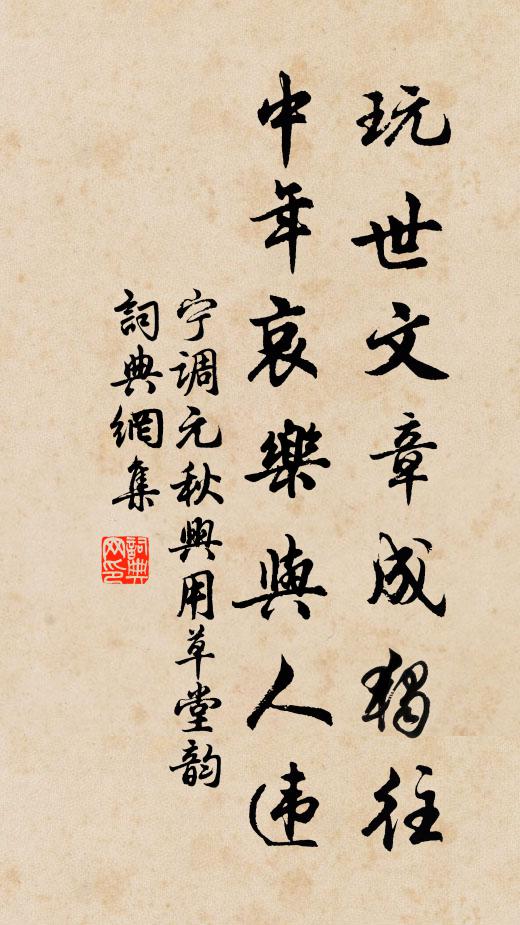 玩世文章成独往
中年哀樂與人违
宁调元秋興用草堂韵
詞典網集
詞典网印